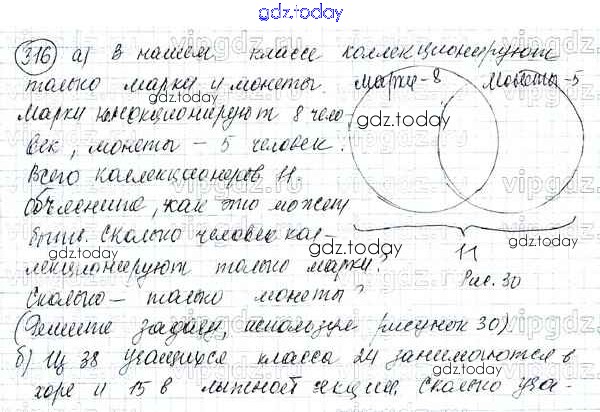 gdz.today
316 а) В нашем классе коллекционируют
только марки и монеты. Марки-8 Монеты-5
Марки коллекционируют 8 чело-
век, монеты – 5 человек.
Всего коллекционеров 11.
Объясните, как это может
быть. Сколько человек кол-
лекционируют только марки?
11
Рис. 30
Сколько – только монеты?
(Решите задачу, используя рисунок 30)
б) Из 38 учащихся класса 24 занимаются в
хоре и 15 в лыжной секции. Сколько уча-